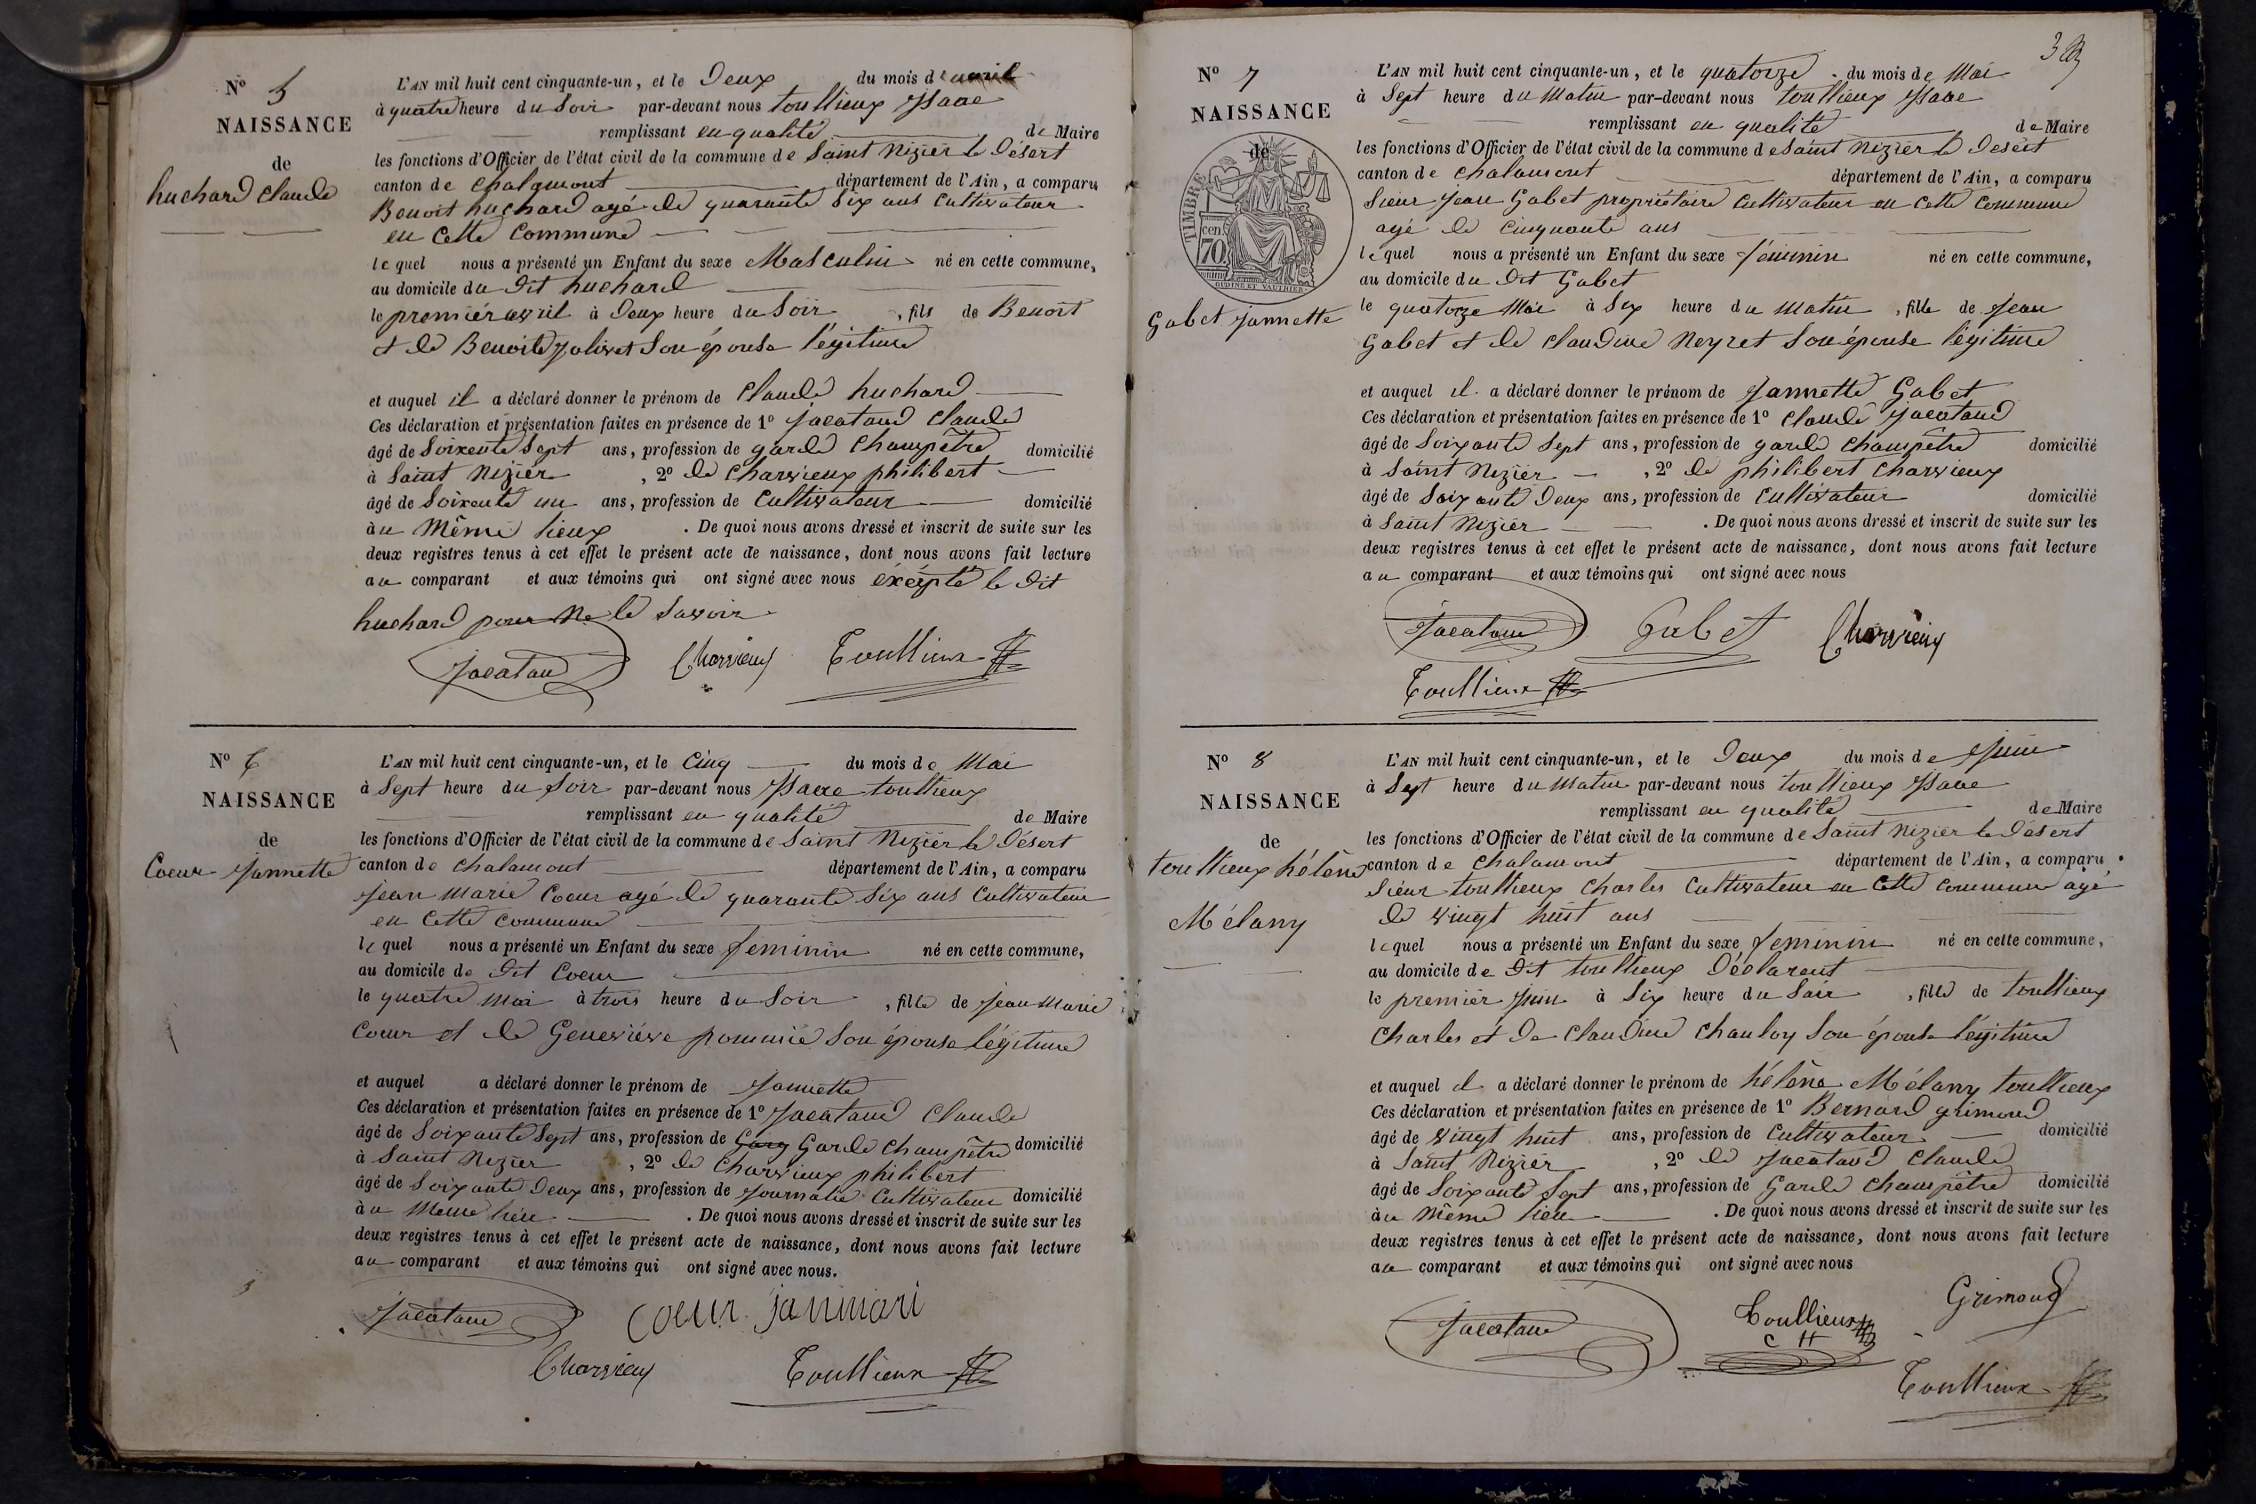 Nº 5
NAISSANCE
de
huchard Claude
L'AN mil huit cent cinquante-un, et le Deux du mois d'avril
à quatre heure du Soir par-devant nous toullieux Isaac
remplissant en qualité de Maire
les fonctions d'Officier de l'état civil de la commune de Saint Nizier le Désert
canton de Chalamont département de l'Ain, a comparu
Benoit huchard agé de quarante Six ans Cultivateur
en Cette Commune
lequel nous a présenté un Enfant du sexe Masculin né en cette commune,
au domicile du Dit huchard
le premiér avril à Deux heure du Soir , fils de Benoit
et de Benoite Jolivet Son épouse légitime
et auquel il a déclaré donner le prénom de Claude huchard
Ces déclaration et présentation faites en présence de 1º Jacataud Claude
âgé de Soixente Sept ans, profession de garde Champêtre domicilié
à Saint Nizier , 2º de Charvieux philibert
âgé de Soixente un ans, profession de Cultivateur domicilié
àu Même lieux . De quoi nous avons dressé et inscrit de suite sur les
deux registres tenus à cet effet le présent acte de naissance, dont nous avons fait lecture
au comparant et aux témoins qui ont signé avec nous éxcépté le Dit
huchard pour Ne le Savoir
Jacataud Charvieux Toullieux
Nº 6
NAISSANCE
de
Coeur Jannette
L'AN mil huit cent cinquante-un, et le Cinq du mois de Mai
à Sept heure du Soir par-devant nous Isaac toullieux
remplissant en qualité de Maire
les fonctions d'Officier de l'état civil de la commune de Saint Nizier le Désert
canton de Chalamont département de l'Ain, a comparu
Jean Marie Coeur agé de quarante Six ans Cultivateur
en Cette Commune
lequel nous a présenté un Enfant du sexe feminin né en cette commune,
au domicile de Dit Coeur
le quatre Mai à trois heure du Soir , fille de Jean Marie
Coeur et de Geneviève pommié Son épouse légitime
et auquel a déclaré donner le prénom de Jannette
Ces déclaration et présentation faites en présence de 1º Jacataud Claude
âgé de Soixante Sept ans, profession de Garde Champêtre domicilié
à Saint Nizier , 2º de Charvieux philibert
âgé de Soixante Deux ans, profession de Cultivateur domicilié
àu Meme lieu . De quoi nous avons dressé et inscrit de suite sur les
deux registres tenus à cet effet le présent acte de naissance, dont nous avons fait lecture
au comparant et aux témoins qui ont signé avec nous.
Jacataud Coeur janmari
Charvieux Toullieux
3
Nº 7
NAISSANCE
de
TIMBRE
cen
70
OUDINE ET VAUTHIER
Gabet Jannette
L'AN mil huit cent cinquante-un, et le quatorze du mois de Mai
à Sept heure du Matin par-devant nous toullieux Isaac
remplissant en qualité de Maire
les fonctions d'Officier de l'état civil de la commune de Saint Nizier le Désert
canton de Chalamont département de l'Ain, a comparu
Sieur Jean Gabet propriétaire Cultivateur en Cette Commune
agé de Cinquante ans
lequel nous a présenté un Enfant du sexe féminin né en cette commune,
au domicile du Dit Gabet
le quatorze Mai à Six heure du Matin , fille de Jean
Gabet et de Claudine Neyret Son épouse légitime
et auquel il a déclaré donner le prénom de Jannette Gabet
Ces déclaration et présentation faites en présence de 1º Claude Jacataud
âgé de Soixante Sept ans, profession de garde Champêtre domicilié
à Saint Nizier , 2º de philibert Charvieux
âgé de Soixante Deux ans, profession de Cultivateur domicilié
à Saint Nizier . De quoi nous avons dressé et inscrit de suite sur les
deux registres tenus à cet effet le présent acte de naissance, dont nous avons fait lecture
au comparant et aux témoins qui ont signé avec nous
Jacataud Gabet Charvieux
Toullieux
Nº 8
NAISSANCE
de
toullieux hélène
Mélany
L'AN mil huit cent cinquante-un, et le Deux du mois de Juin
à Sept heure du Matin par-devant nous toullieux Isaac
remplissant en qualité de Maire
les fonctions d'Officier de l'état civil de la commune de Saint Nizier le Désert
canton de Chalamont département de l'Ain, a comparu
Siéur toullieux Charles Cultivateur en Cette Commune agé
de vingt huit ans
lequel nous a présenté un Enfant du sexe feminin né en cette commune,
au domicile de Dit toullieux Déclarent
le premiér Juin à Six heure du Soir , fille de toullieux
Charles et De Claudine Chanloy Son épouse légitime
et auquel il a déclaré donner le prénom de hélène Mélany toullieux
Ces déclaration et présentation faites en présence de 1º Bernard grimoud
âgé de vingt huit ans, profession de Cultivateur domicilié
à Saint Nizier , 2º de Jacataud Claude
âgé de Soixante Sept ans, profession de Garde Champêtre domicilié
àu Même lieu . De quoi nous avons dressé et inscrit de suite sur les
deux registres tenus à cet effet le présent acte de naissance, dont nous avons fait lecture
au comparant et aux témoins qui ont signé avec nous
Jacataud Toullieux Grimoud
C H
Toullieux